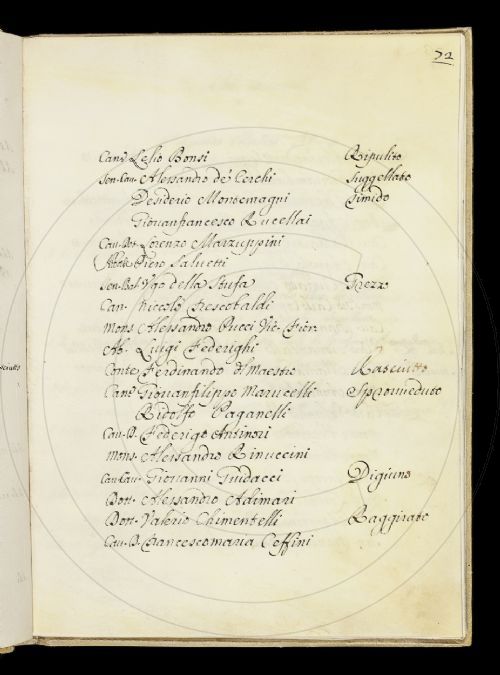 72
Can.º Lelio Bonsi Ripulito
Sen. Cau. Alessandro de' Cerchi Suggellato
Desiderio Montemagni Timido
Giouanfrancesco Rucellai
Cau. Bat. Lorenzo Marzuppini
Piero Saluetti
Sen. Bal. Ugo della Stufa Grezzo
Can. Niccolò Frescobaldi
Mons. Alessandro Pucci Vic. Fior.
Ab. Luigi Federighi
Conte Ferdinando d'l Maestro Rasciutto
Can.º Giouanfilippo Marucelli Sprouueduto
Ridolfo Paganelli
Cau. B. Federigo Antinori
Mons. Alessandro Rinuccini
Can. Cau. Giouanni Guidacci Digiuno
Dott. Alessandro Adimari
Dott. Valerio Chimentelli Raggirato
Cau. B. Francescomaria Ceffini